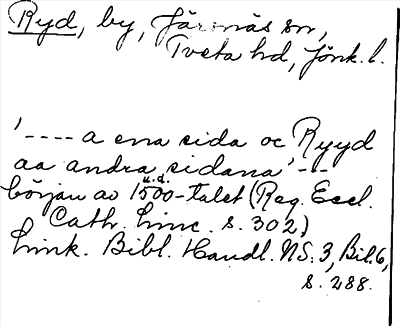 Ryd, by, Järsnäs sn,
Tveta hd, Jönk. l.
'---- a ena sida oc Ryyd
aa andra sidana' ---
u.d.
början av 1500-talet (Reg. Eccl.
Cath. Linc. s. 302)
Link. Bibl. Handl. NS. 3, Bil. 6,
s. 288.